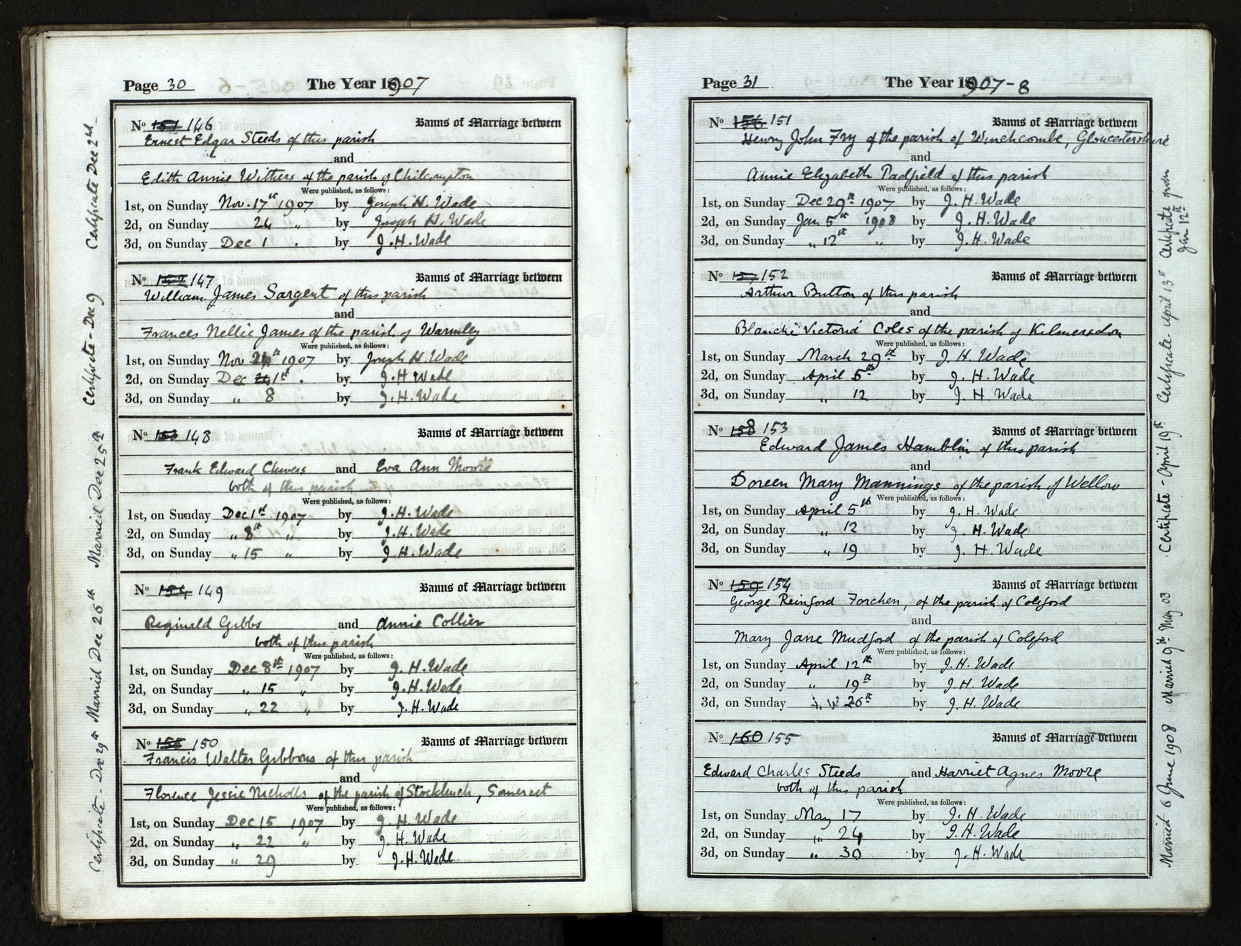 Page 30 The Year 1907
No 151 146 Banns of Marriage between
Ernest Edgar Steeds of this parish
and
Edith Annie Withers of the parish of Chilcompton
Were published, as follows:
1st, on Sunday Nov. 17th 1907 by Joseph H. Wade
2d, on Sunday 24 " by Joseph H. Wade
3d, on Sunday Dec 1 . by J. H. Wade
No 152 147 Banns of Marriage between
William James Sargent of this parish
and
Frances Nellie James of the parish of Warmley
Were published, as follows:
1st, on Sunday Nov 24th 1907 by Joseph H. Wade
2d, on Sunday Dec 1st . by J. H. Wade
3d, on Sunday " 8 by J. H. Wade
No 153 148 Banns of Marriage between
Frank Edward Chivers and Eva Ann Moore
both of this parish
Were published, as follows:
1st, on Sunday Dec 1st 1907 by J. H. Wade
2d, on Sunday " 8th " by J. H. Wade
3d, on Sunday " 15 " by J. H. Wade
No 154 149 Banns of Marriage between
Reginald Gibbs and Annie Collier
both of this parish
Were published, as follows:
1st, on Sunday Dec 8th 1907 by J. H. Wade
2d, on Sunday " 15 " by J. H. Wade
3d, on Sunday " 22 " by J. H. Wade
No 155 150 Banns of Marriage between
Francis Walter Gibbons of this parish
and
Florence Jessie Nicholls of the parish of Stocklinch, Somerset
Were published, as follows:
1st, on Sunday Dec 15 1907 by J. H. Wade
2d, on Sunday " 22 " by J. H. Wade
3d, on Sunday " 29 by J. H. Wade
Certificate Dec 2nd
Certificate - Dec 9
Married Dec 25th
Married Dec 26th
Certificate - Dec 29th
Page 31 The Year 1907-8
No 156 151 Banns of Marriage between
Henry John Fry of the parish of Winchcombe, Gloucestershire
and
Annie Elizabeth Padfield of this parish
Were published, as follows:
1st, on Sunday Dec 29th 1907 by J. H. Wade
2d, on Sunday Jan 5th 1908 by J. H. Wade
3d, on Sunday " 12th " by J. H. Wade
No 157 152 Banns of Marriage between
Arthur Button of this parish
and
Blanche Victoria Coles of the parish of Kilmersdon
Were published, as follows:
1st, on Sunday March 29th by J. H. Wade
2d, on Sunday April 5th by J. H. Wade
3d, on Sunday " 12 by J. H. Wade
No 158 153 Banns of Marriage between
Edward James Hamblin of this parish
and
Doreen Mary Mannings of the parish of Wellow
Were published, as follows:
1st, on Sunday April 5th by J. H. Wade
2d, on Sunday " 12 by J. H. Wade
3d, on Sunday " 19 by J. H. Wade
No 159 154 Banns of Marriage between
George Reinford Forchen, of the parish of Coleford
and
Mary Jane Mudford of the parish of Coleford
Were published, as follows:
1st, on Sunday April 12th by J. H. Wade
2d, on Sunday " 19th by J. H. Wade
3d, on Sunday 26th by J. H. Wade
No 160 155 Banns of Marriage between
Edward Charles Steeds and Harriet Agnes Moore
both of this parish
Were published, as follows:
1st, on Sunday May 17 by J. H. Wade
2d, on Sunday " 24 by J. H. Wade
3d, on Sunday " 30 by J. H. Wade
Certificate Jan 12th
Certificate April 13th
Certificate - April 19th
Married 9th May 03
Married 6 June 1908